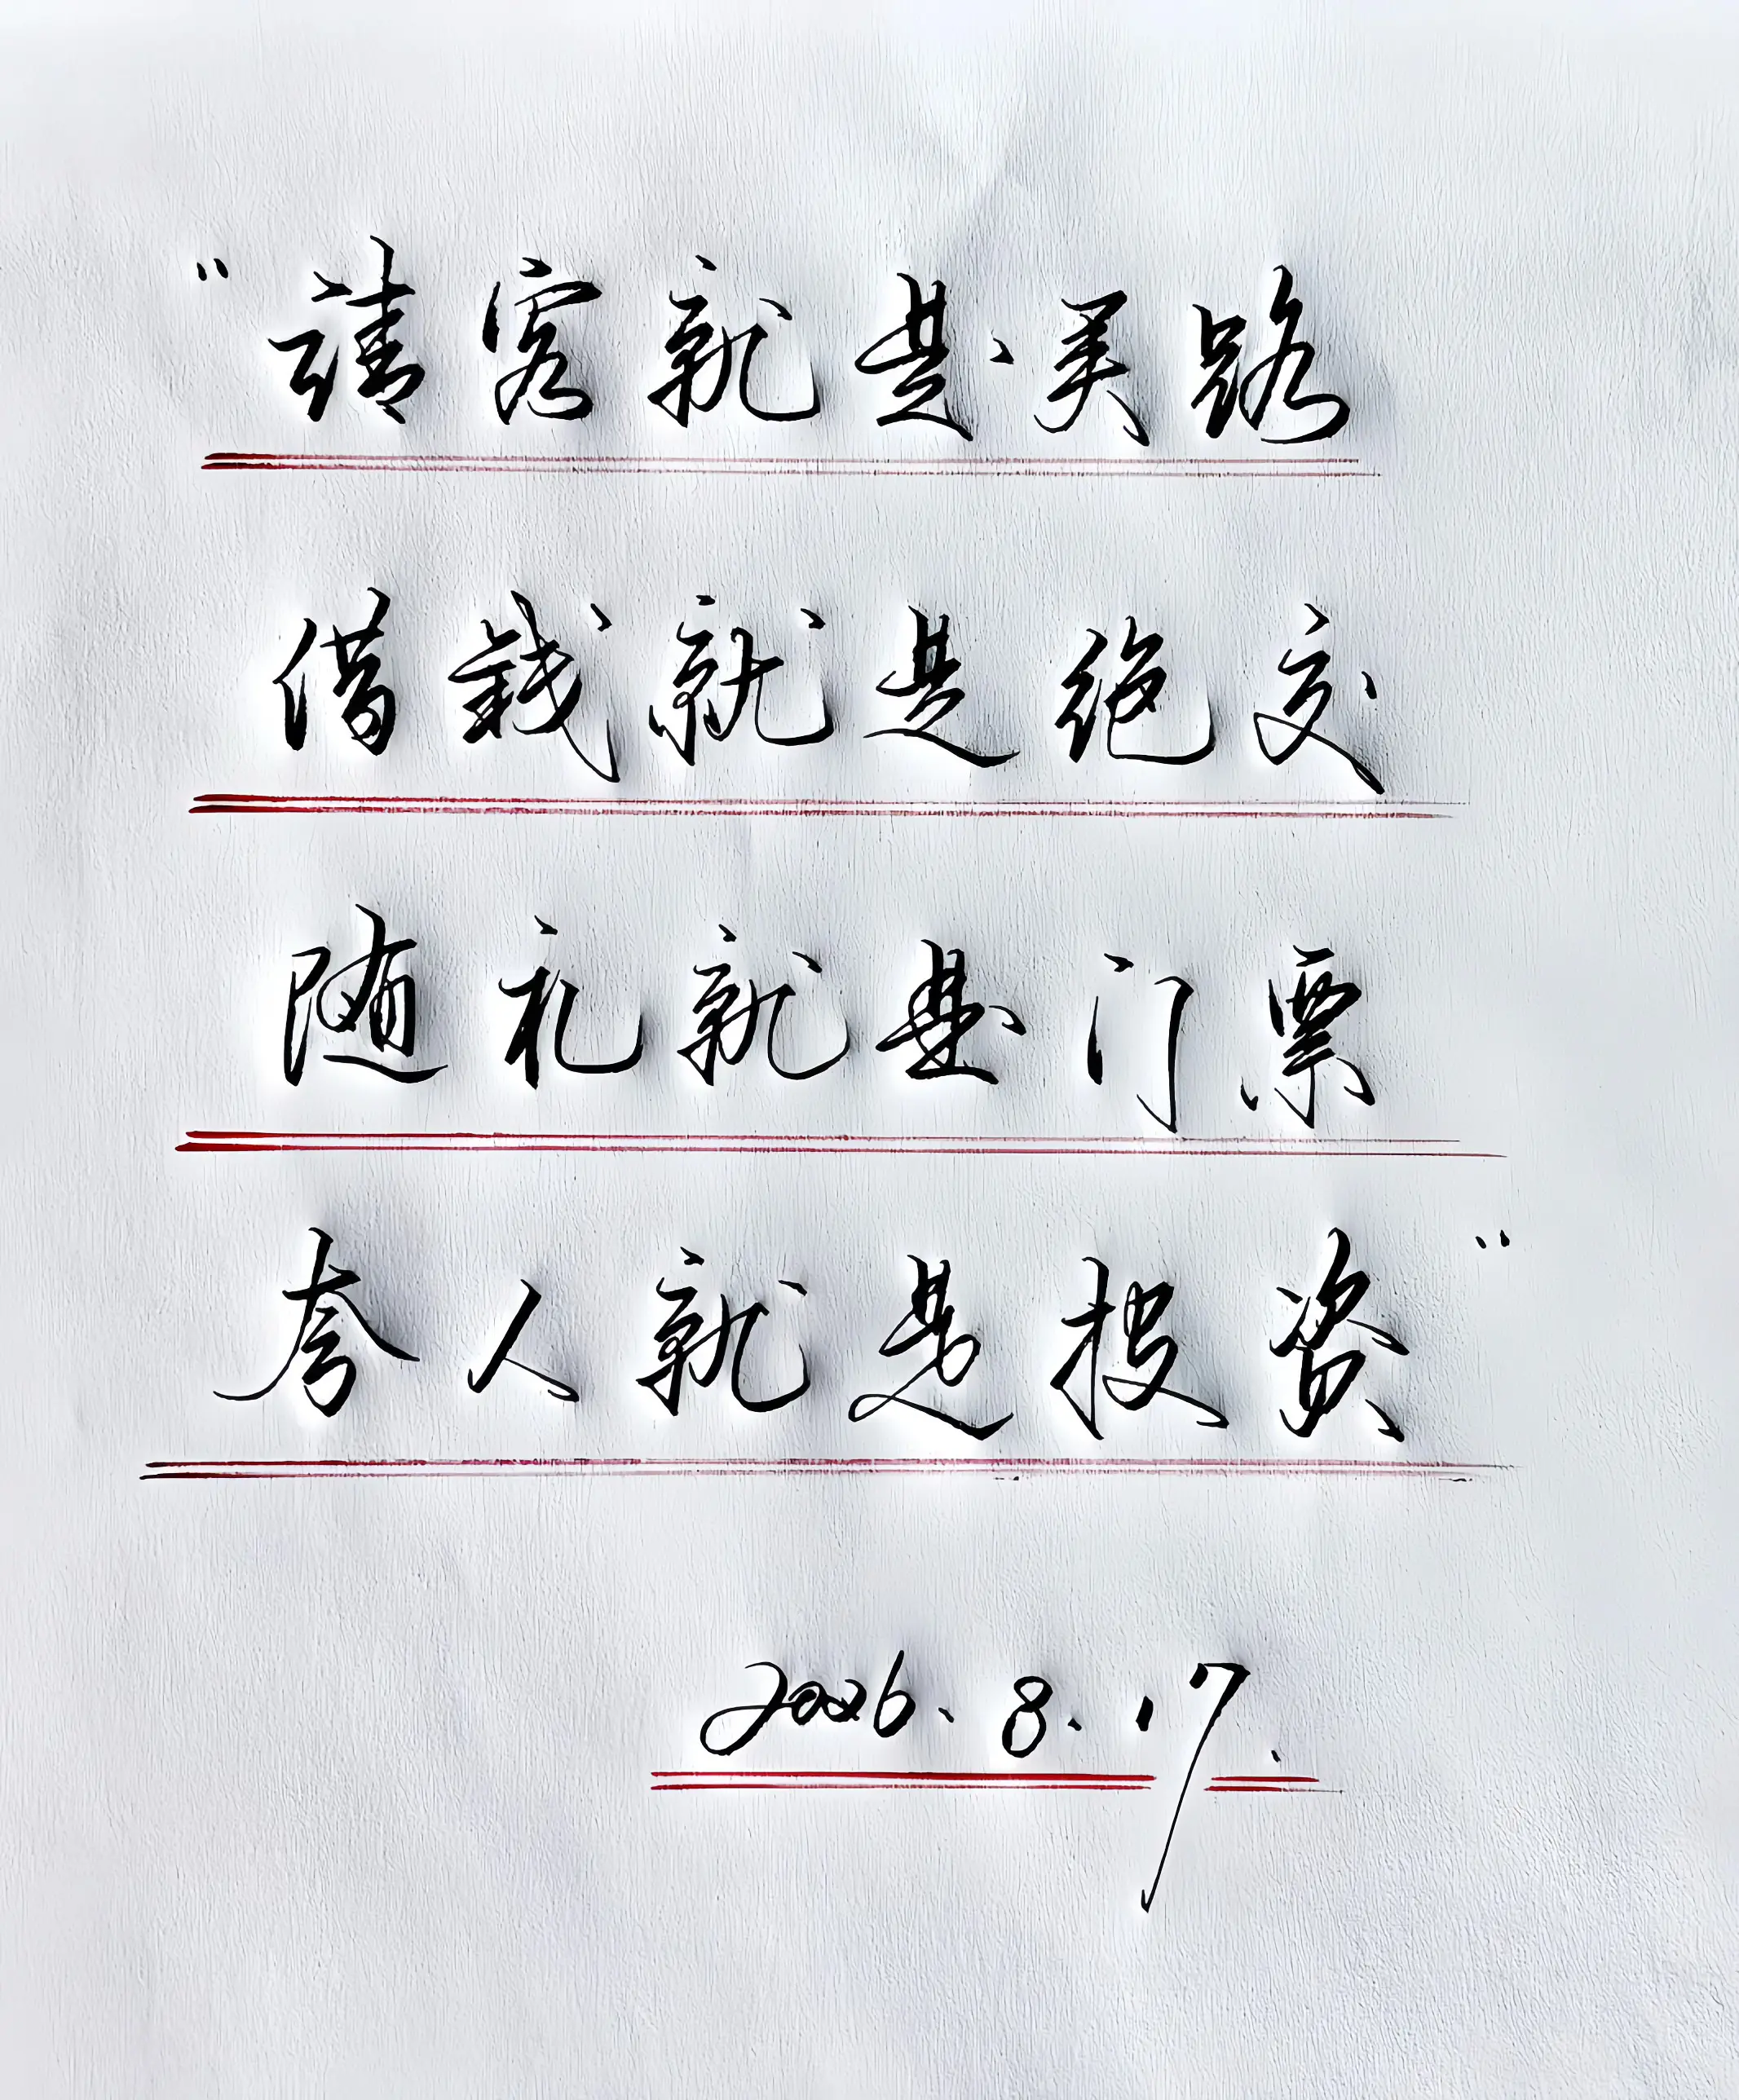 “请客就是买路
借钱就是绝交
随礼就是门票
夸人就是投资”
2026.8.17.